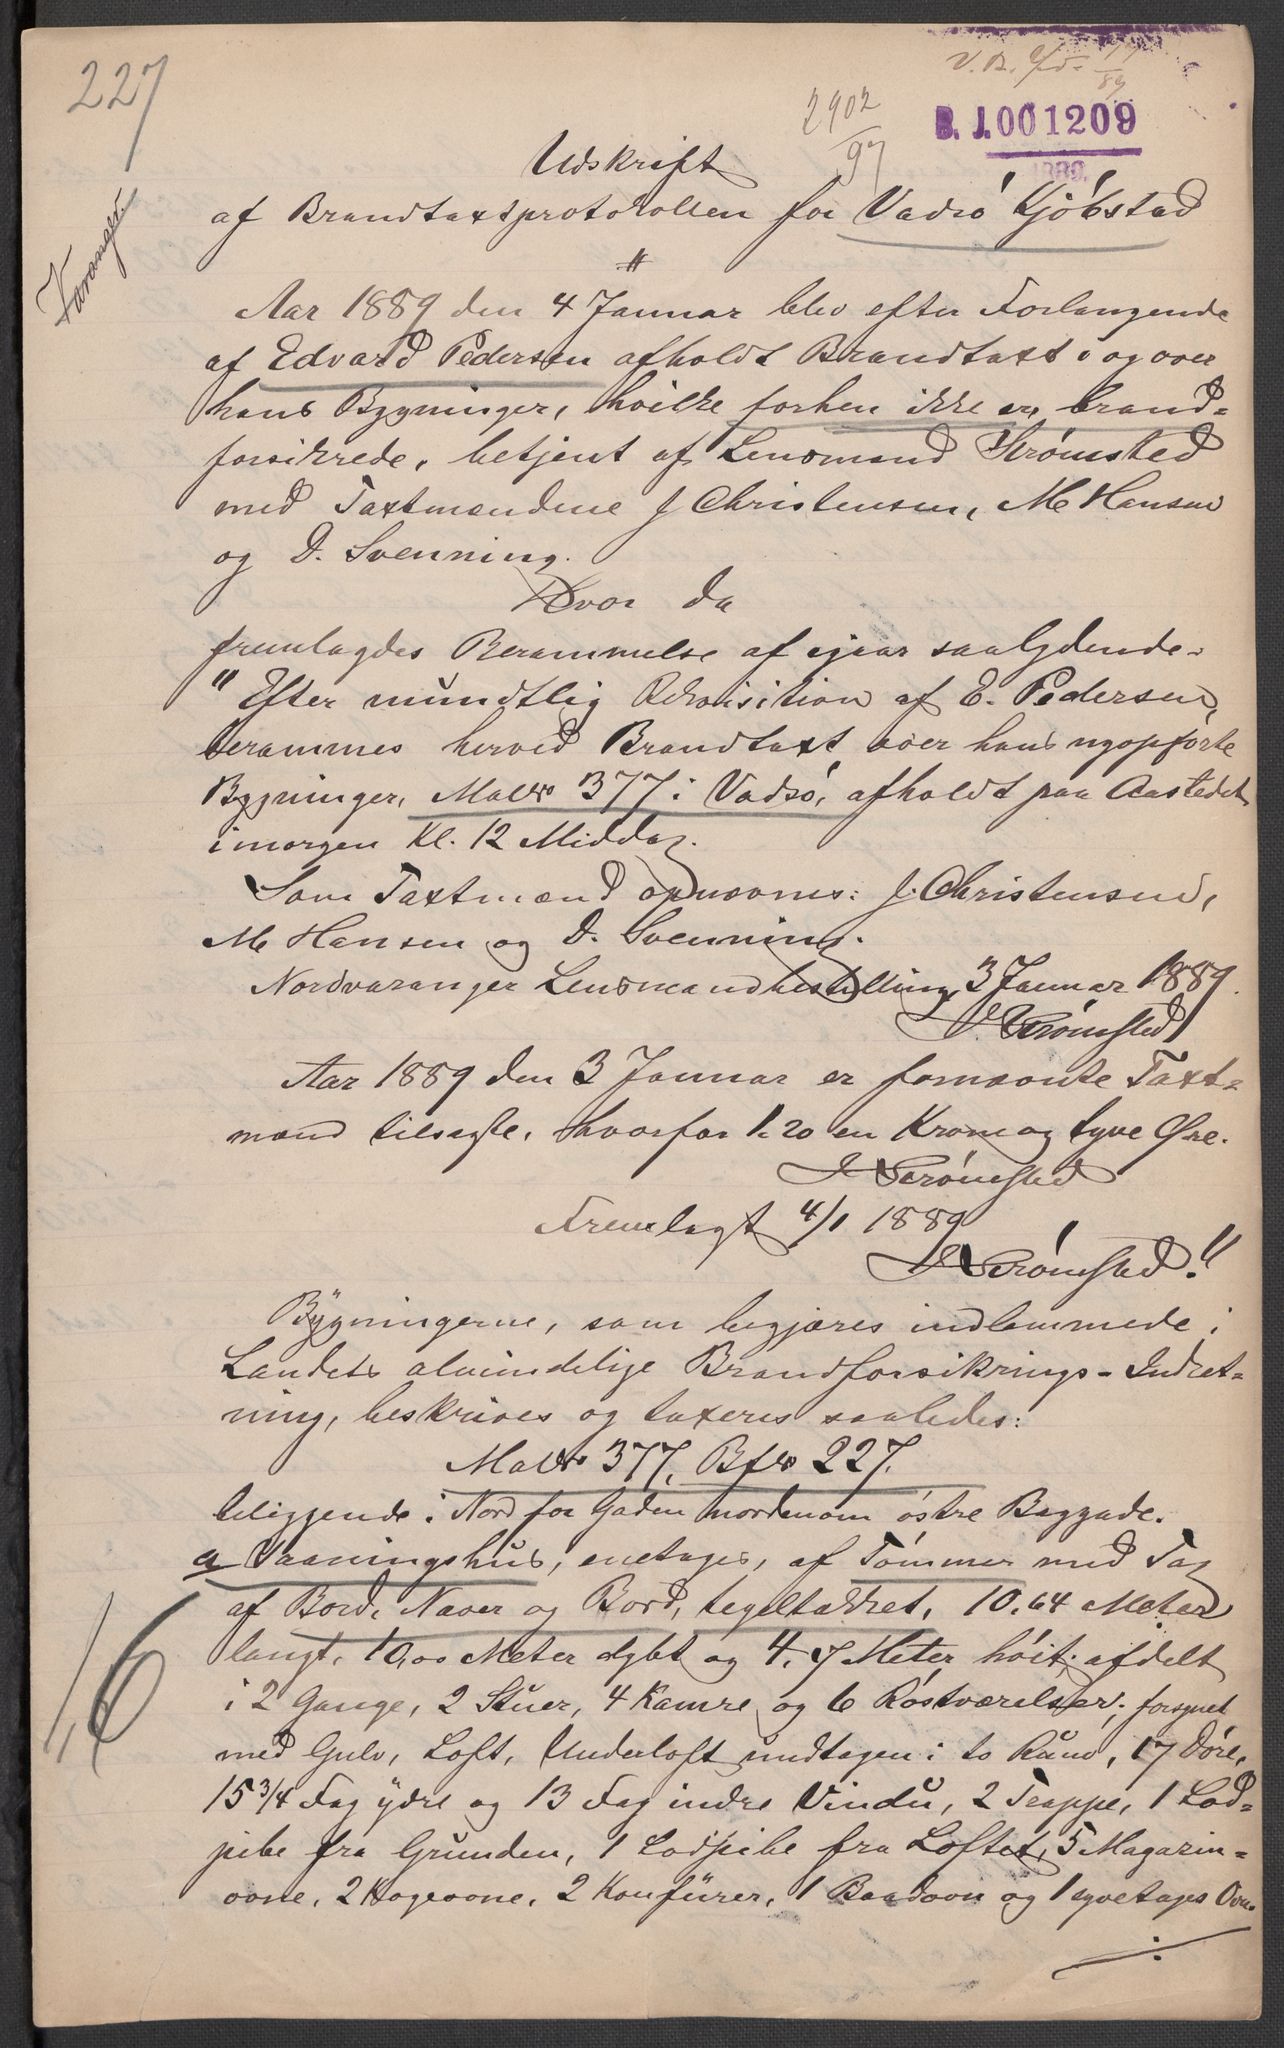 227
2902
97
B. J. 001209
1889.
Varanger
Udskrift
af Brandtaxtprotokollen for Vadsö Kjöbstad
Aar 1889 den 4 Januar blev efter Forlangende
af Edvard Pedersen afholdt Brandtaxt i og over
hans Bygninger, hvilke forhen ikke er brand-
forsikrede, betjent af Lensmand Strömsted
med Taxtmændene J Christensen, M Hansen
og D. Svenning.
Hvor da
fremlagdes Berammelse af igaar saalydende.
"Efter mundtlig Rekvisition af E. Pedersen,
berammes herved Brandtaxt over hans nyopförte
Bygninger, Matr 377 i Vadsö, afholdt paa Aastedet
imorgen Kl. 12 Middag.
Som Taxtmænd opnævnes: J. Christensen,
M Hansen og D. Svenning.
Nordvaranger Lensmandbestilling 3 Januar 1889.
J. Strömsted
Aar 1889 den 3 Januar er fornævnte Taxt-
mænd tilsagte, hvorfor 1.20 en Krone og tyve Øre.
J Strömsted
Fremlagt 4/1 1889
J Strömsted."
Bygningerne, som begjæres indlemmede i
Landets almindelige Brandforsikrings-Indret-
ning, beskrives og taxeres saaledes:
Matr 377, Bf 227.
beliggende i Nord for Gaden nordenom östre Baggade.
a Vaaningshus, enetages, af Tömmer med Tag
af Bord, Næver og Bord, tegeltækket, 10,64 Meter
langt, 10,00 Meter dybt og 4,7 Meter höit; afdelt
i 2 Gange, 2 Stuer, 4 Kamre og 6 Röstværelser; forsynet
med Gulv, Loft, Underloft undtagen i to Rum, 17 Döre,
15 3/4 Fag ydre og 13 Fag indre Vindu, 2 Trappe, 1 Lod-
pibe fra Grunden, 1 Lodpibe fra Loftet, 5 Magazin-
ovne, 2 Kogeovne, 2 Komfürer, 1 Bagovn og 1 syvetages Ovn.
16